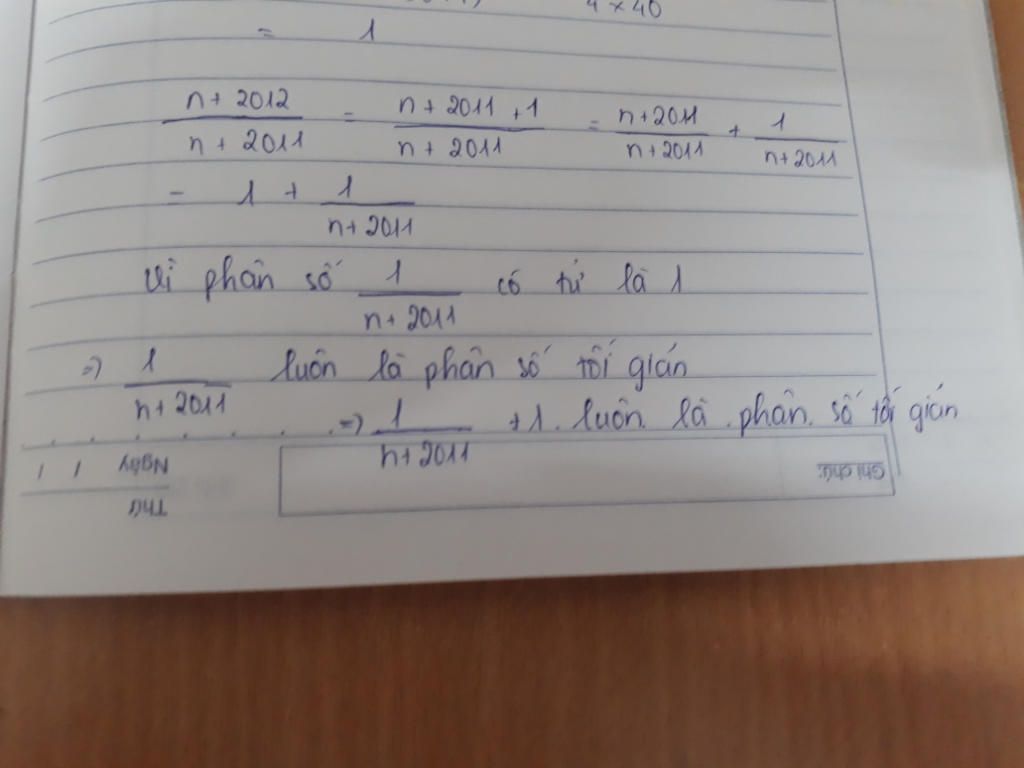 4 × 40
= 1
n + 2012 / n + 2011 = n + 2011 + 1 / n + 2011 = n + 2011 / n + 2011 + 1 / n + 2011
= 1 + 1 / n + 2011
Vì phân số 1 / n + 2011 có tử là 1
=> 1 / n + 2011 luôn là phân số tối gián
=> 1 / n + 2011 + 1 luôn là phân số tối gián
Ghi chú:
Ngày / /
Thứ